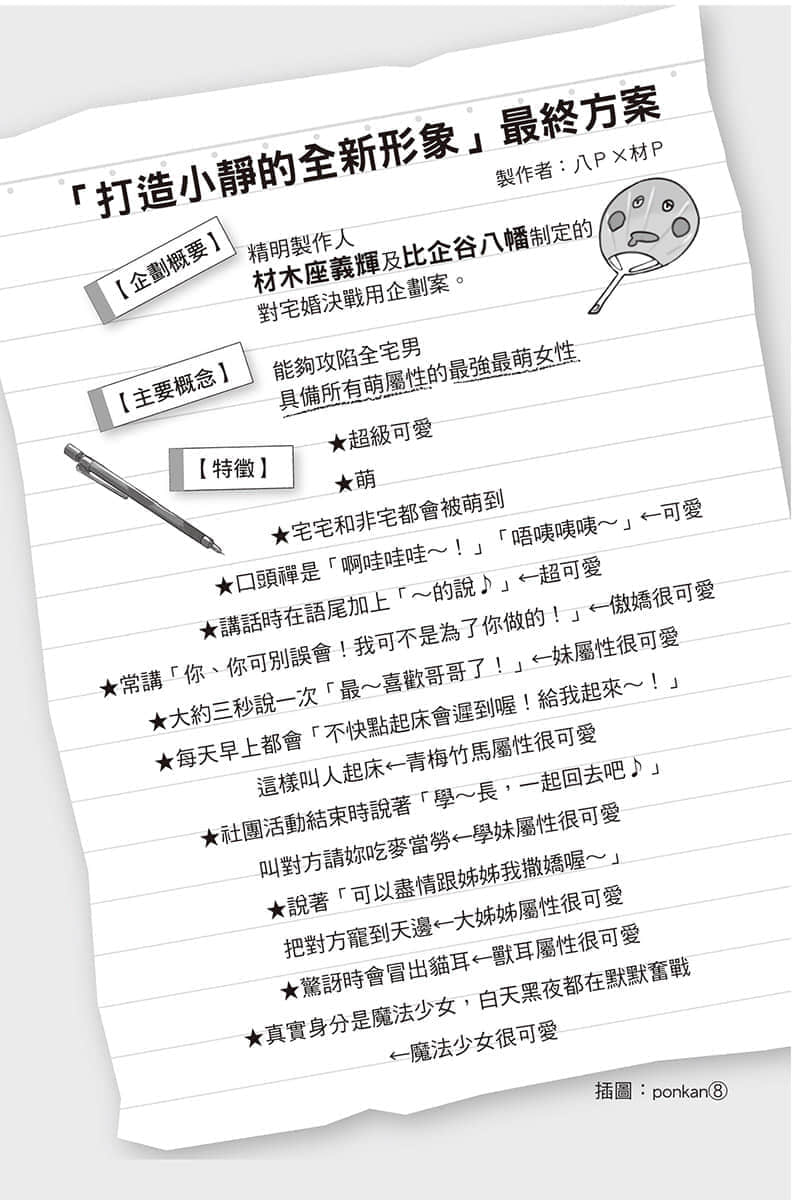 「打造小靜的全新形象」最終方案
製作者：八P×材P
【企劃概要】
精明製作人
材木座義輝及比企谷八幡制定的
對宅婚決戰用企劃案。
【主要概念】
能夠攻陷全宅男
具備所有萌屬性的最強最萌女性
【特徵】
★超級可愛
★萌
★宅宅和非宅都會被萌到
★口頭禪是「啊哇哇哇～！」「唔咦咦咦～」←可愛
★講話時在語尾加上「～的說♪」←超可愛
★常講「你、你可別誤會！我可不是為了你做的！」←傲嬌很可愛
★大約三秒說一次「最～喜歡哥哥了！」←妹屬性很可愛
★每天早上都會「不快點起床會遲到喔！給我起來～！」
這樣叫人起床←青梅竹馬屬性很可愛
★社團活動結束時說著「學～長，一起回去吧♪」
叫對方請妳吃麥當勞←學妹屬性很可愛
★說著「可以盡情跟姊姊我撒嬌喔～」
把對方寵到天邊←大姊姊屬性很可愛
★驚訝時會冒出貓耳←獸耳屬性很可愛
★真實身分是魔法少女，白天黑夜都在默默奮戰
←魔法少女很可愛
插圖：ponkan⑧